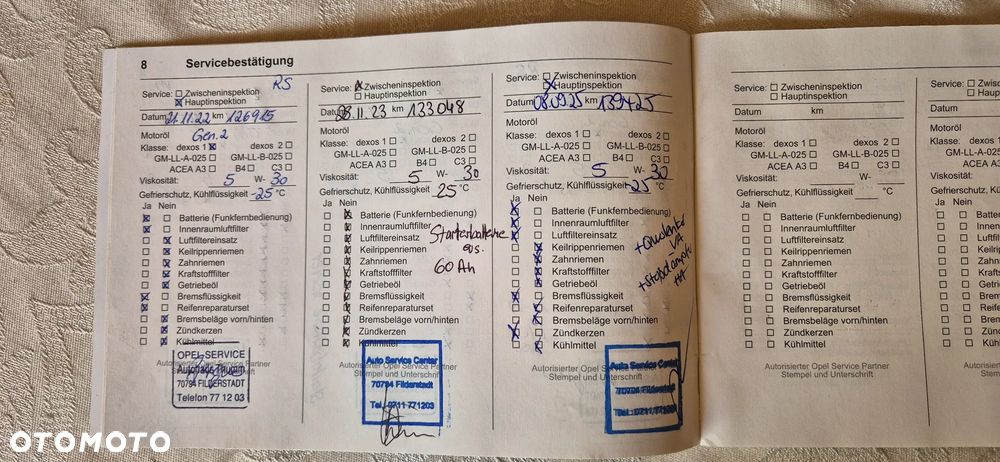 8 Servicebestätigung
RS
Service: Zwischeninspektion
Hauptinspektion
Datum 21.11.22 km 126915
Motoröl Gen.2
Klasse: dexos 1 dexos 2
GM-LL-A-025 GM-LL-B-025
ACEA A3 B4 C3
Viskosität: 5 W- 30
Gefrierschutz, Kühlflüssigkeit -25 °C
Ja Nein
Batterie (Funkfernbedienung)
Innenraumluftfilter
Luftfiltereinsatz
Keilrippenriemen
Zahnriemen
Kraftstofffilter
Getriebeöl
Bremsflüssigkeit
Reifenreparaturset
Bremsbeläge vorn/hinten
Zündkerzen
Kühlmittel
Autorisierter Opel Service Partner
OPEL SERVICE
70794 FILDERSTADT
Telefon 77 12 03
Service: Zwischeninspektion
Hauptinspektion
Datum 23.11.23 km 133048
Motoröl
Klasse: dexos 1 dexos 2
GM-LL-A-025 GM-LL-B-025
ACEA A3 B4 C3
Viskosität: 5 W- 30
Gefrierschutz, Kühlflüssigkeit 25 °C
Ja Nein
Batterie (Funkfernbedienung)
Innenraumluftfilter
Luftfiltereinsatz
Keilrippenriemen
Zahnriemen
Kraftstofffilter
Getriebeöl
Bremsflüssigkeit
Reifenreparaturset
Bremsbeläge vorn/hinten
Zündkerzen
Kühlmittel
Starterbatterie
60 Ah
Autorisierter Opel Service Partner
Stempel und Unterschrift
Auto Service Center
70794 Filderstadt
Tel.: 0711 771203
Service: Zwischeninspektion
Hauptinspektion
Datum 08.09.25 km 139425
Motoröl
Klasse: dexos 1 dexos 2
GM-LL-A-025 GM-LL-B-025
ACEA A3 B4 C3
Viskosität: 5 W- 30
Gefrierschutz, Kühlflüssigkeit -25 °C
Ja Nein
Batterie (Funkfernbedienung)
Innenraumluftfilter
Luftfiltereinsatz
Keilrippenriemen
Zahnriemen
Kraftstofffilter
Getriebeöl
Bremsflüssigkeit
Reifenreparaturset
Bremsbeläge vorn/hinten
Zündkerzen
Kühlmittel
+ Querlenker
VA
+ Stoßdämpfer
HA
Autorisierter Opel Service Partner
Stempel und Unterschrift
Auto Service Center
70794 Filderstadt
Tel.: 0711 771203
Service: Zwischeninspektion
Hauptinspektion
Datum km
Motoröl
Klasse: dexos 1 dexos 2
GM-LL-A-025 GM-LL-B-025
ACEA A3 B4 C3
Viskosität: W-
Gefrierschutz, Kühlflüssigkeit °C
Ja Nein
Batterie (Funkfernbedienung)
Innenraumluftfilter
Luftfiltereinsatz
Keilrippenriemen
Zahnriemen
Kraftstofffilter
Getriebeöl
Bremsflüssigkeit
Reifenreparaturset
Bremsbeläge vorn/hinten
Zündkerzen
Kühlmittel
Autorisierter Opel Service Partner
Stempel und Unterschrift
Service:
Datum
Motoröl
Klasse:
GM-LL
Viskosität:
Gefrierschutz
Ja Nein
OTOMOTO